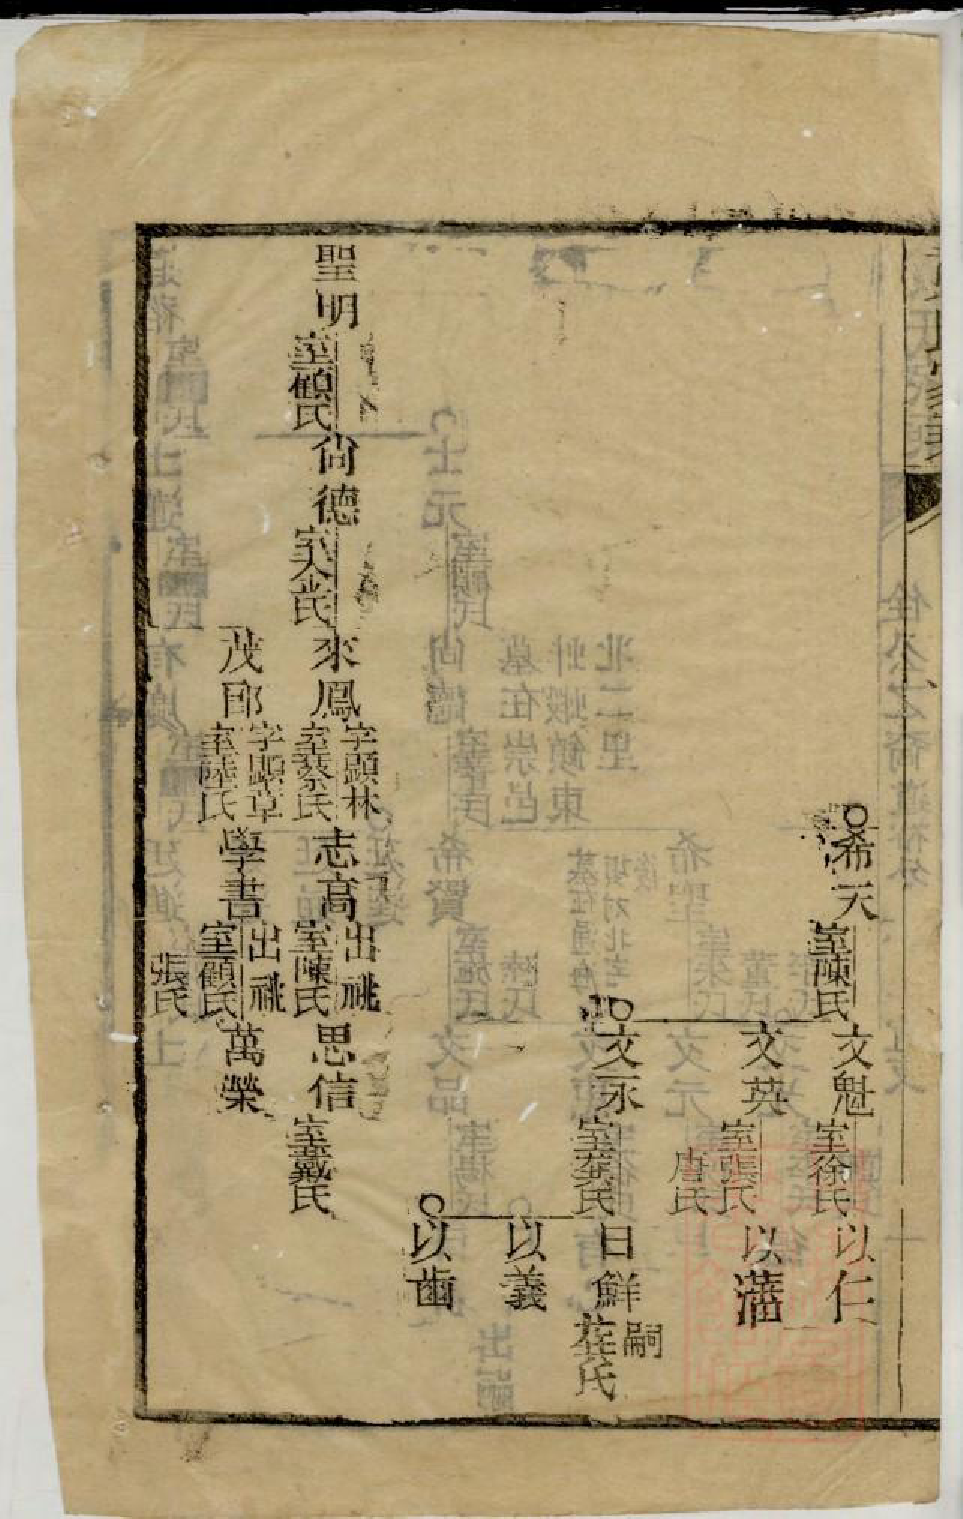 希天
室陳氏
文魁
室徐氏
以仁
文英
室張氏
唐氏
以藩
文永
室龔氏
日鮮
嗣
茬氏
以義
以齒
聖明
室顧氏
尙德
來鳳
字顯林
室蔡氏
志高
出祧
室陳氏
思信
室戴氏
茂郎
字顯章
室陸氏
學書
出祧
室顧氏
張氏
萬榮